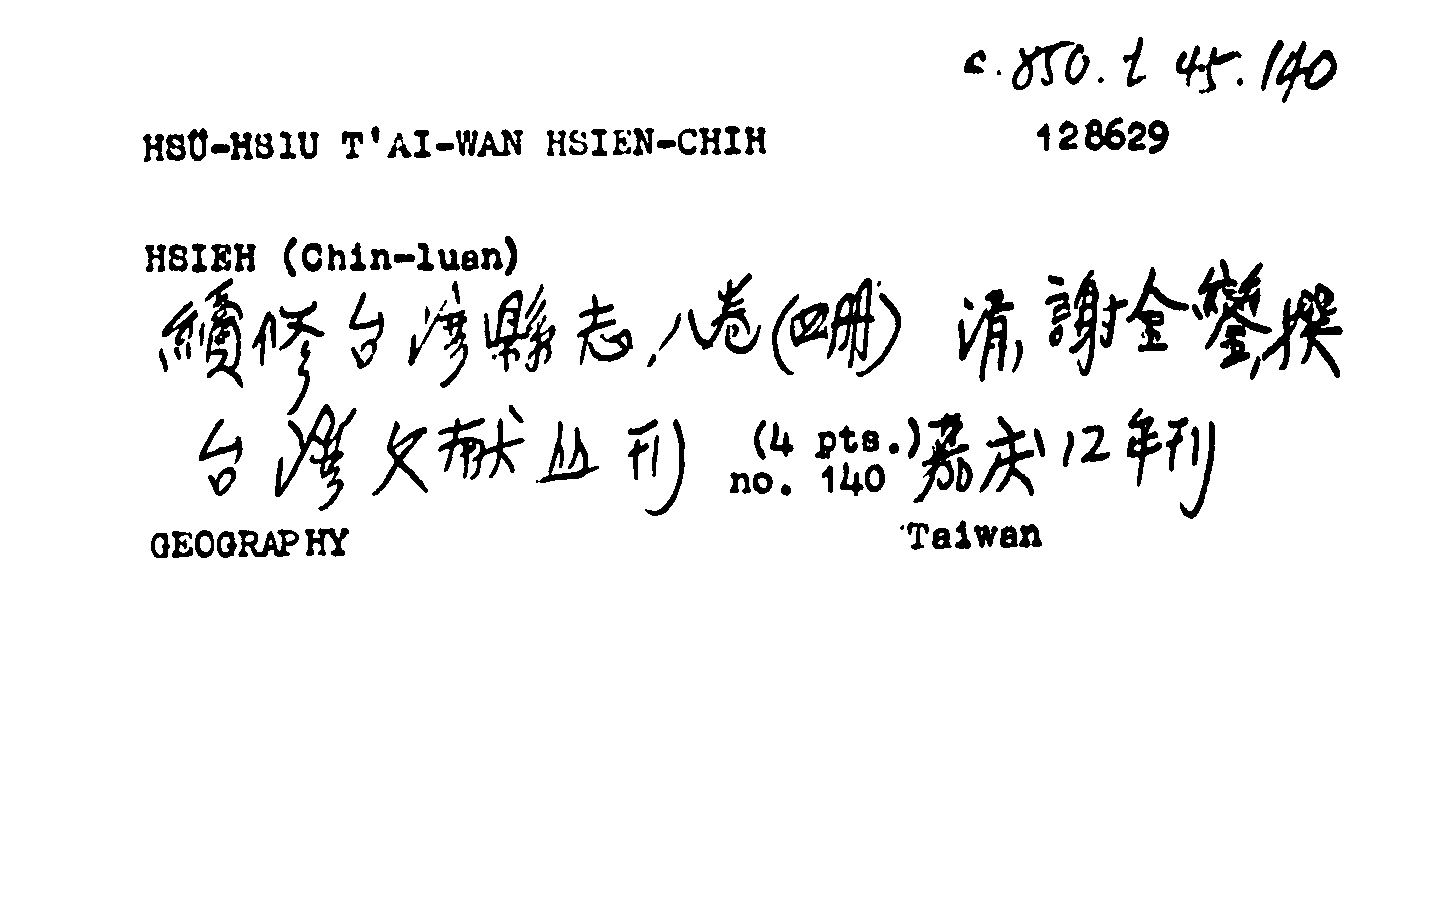 c.850.t 45.140
HSÜ-HSIU T'AI-WAN HSIEN-CHIH 128629
HSIEH (Chin-luan)
續修台灣縣志,八卷(四册) 清,謝金鑾,撰
台灣文献丛刊 (4 pts.) no. 140 嘉庆12年刊
GEOGRAPHY Taiwan